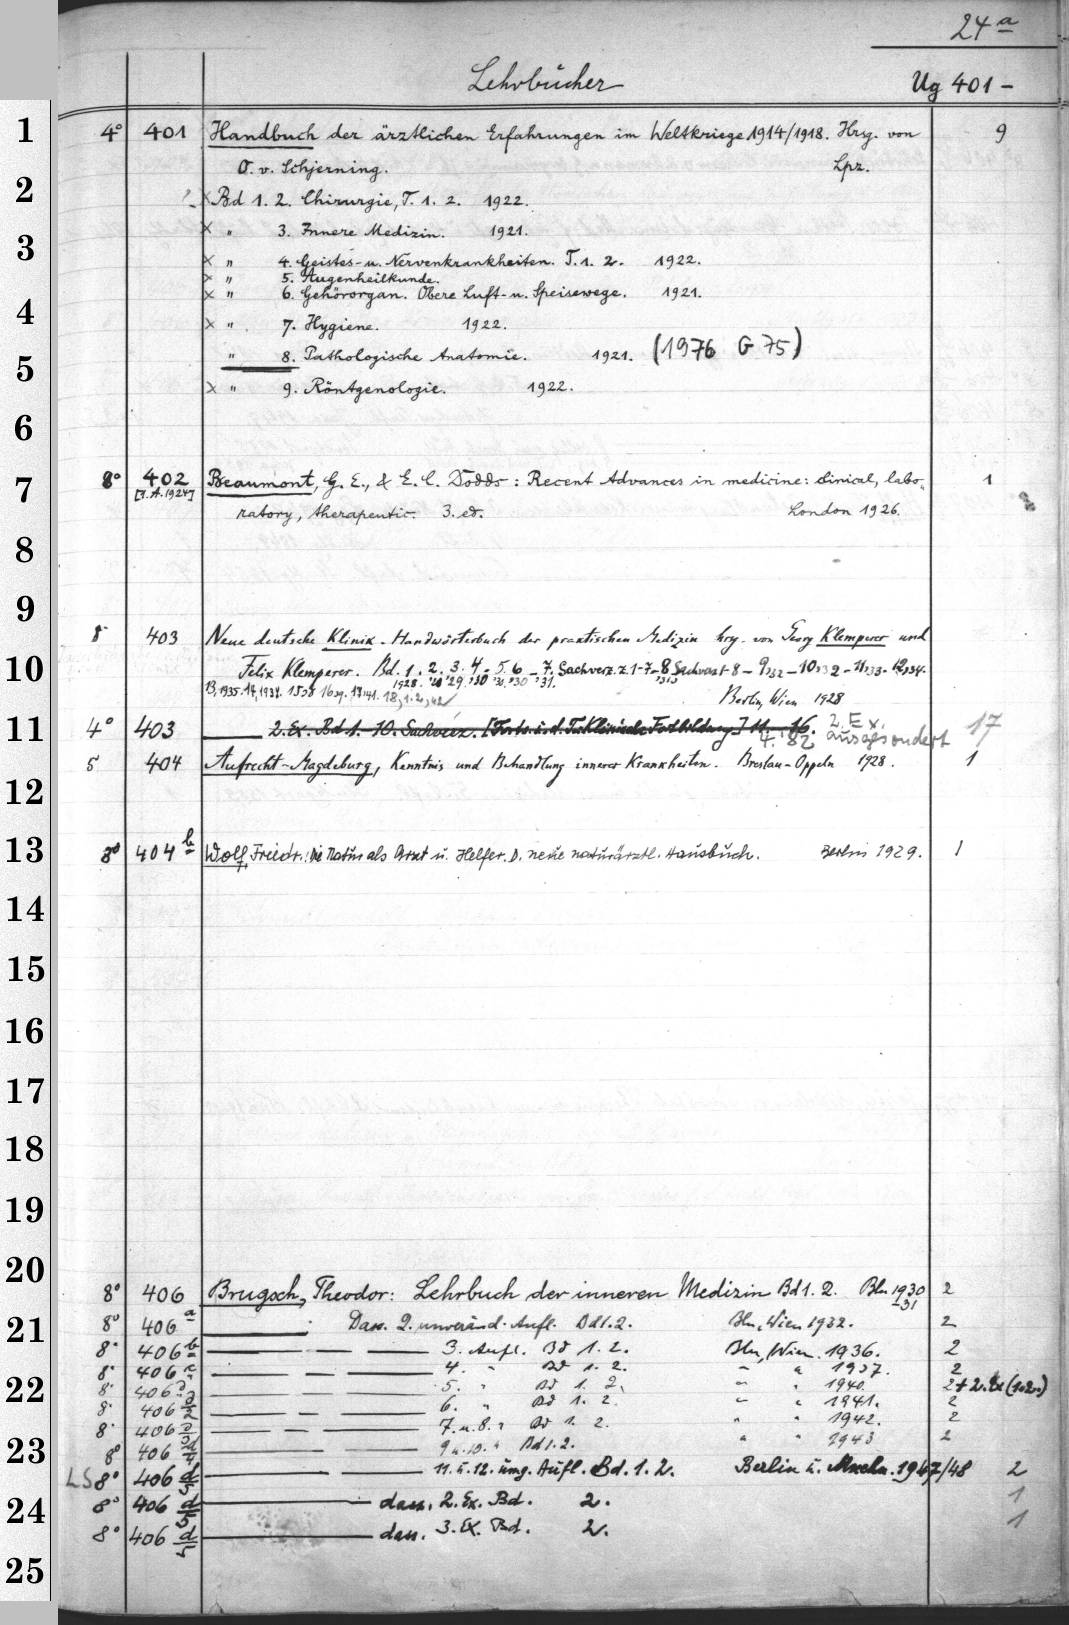 24 a
Lehrbücher Ug 401 –
4° 401 Handbuch der ärztlichen Erfahrungen im Weltkriege 1914/1918. Hrsg. von 9
O. v. Schjerning. Lpz.
× Bd 1. 2. Chirurgie, T. 1. 2. 1922.
× " 3. Innere Medizin. 1921.
× " 4. Geistes- u. Nervenkrankheiten. T. 1. 2. 1922.
× " 5. Augenheilkunde.
× " 6. Gehörorgan. Obere Luft- u. Speisewege. 1921.
× " 7. Hygiene. 1922.
" 8. Pathologische Anatomie. 1921. (1976 G 75)
× " 9. Röntgenologie. 1922.
8° 402 Beaumont, G. E., & E. C. Dodds: Recent Advances in medicine: clinical, labo- 1
[1.A.1924]
ratory, therapeutic. 3. ed. London 1926.
8° 403 Neue deutsche Klinik. Handwörterbuch der praktischen Medizin hrg. von Georg Klemperer und
Felix Klemperer. Bd. 1. 2. 3. 4. 5. 6 – 7. Sachverz. z. 1-7 – 8 – 9,32 – 10,32 – 11,33 – 12,34.
1928. '28 '29. '30 '30 '31.
13,1935. 14,1937. 18,1.2,42
Berlin, Wien 1928
4° 403 2. Ex. Bd 1. – 10. Sachverz. 11. – 16. 2. Ex. 17
4. '82 ausgesondert
8 404 Aufrecht-Magdeburg, Kenntnis und Behandlung innerer Krankheiten. Breslau-Oppeln 1928. 1
8° 404 b Wolf, Friedr.: Die Natur als Arzt u. Helfer. D. neue naturärztl. Hausbuch. Berlin 1929. 1
8° 406 Brugsch, Theodor: Lehrbuch der inneren Medizin Bd 1. 2. Bln 1930 2
–31
8° 406 a —— Dass. 2. unveränd. Aufl. Bd 1. 2. Bln, Wien 1932. 2
8° 406 b —— — —— 3. Aufl. Bd 1. 2. Bln, Wien. 1936. 2
8° 406 c —— — —— 4. " Bd 1. 2. " " 1937. 2
8° 406 d —— — —— 5. " Bd 1. 2. " " 1940. 2 + 2. Ex (1.2.)
8° 406 d/2 —— — —— 6. " Bd 1. 2. " " 1941. 2
8° 406 d/3 —— — —— 7. u. 8. " Bd 1. 2. " " 1942. 2
8° 406 d/4 —— — —— 9 u. 10. " Bd 1. 2. " " 1943 2
LS 8° 406 d/5 —— — —— 11. u. 12. umg. Aufl. Bd. 1. 2. Berlin u. Mnchn. 1947/48 2
8° 406 d/5 —— dass. 2. Ex. Bd. 2. 1
8° 406 d/5 —— dass. 3. Ex. Bd. 2. 1
1
2
3
4
5
6
7
8
9
10
11
12
13
14
15
16
17
18
19
20
21
22
23
24
25